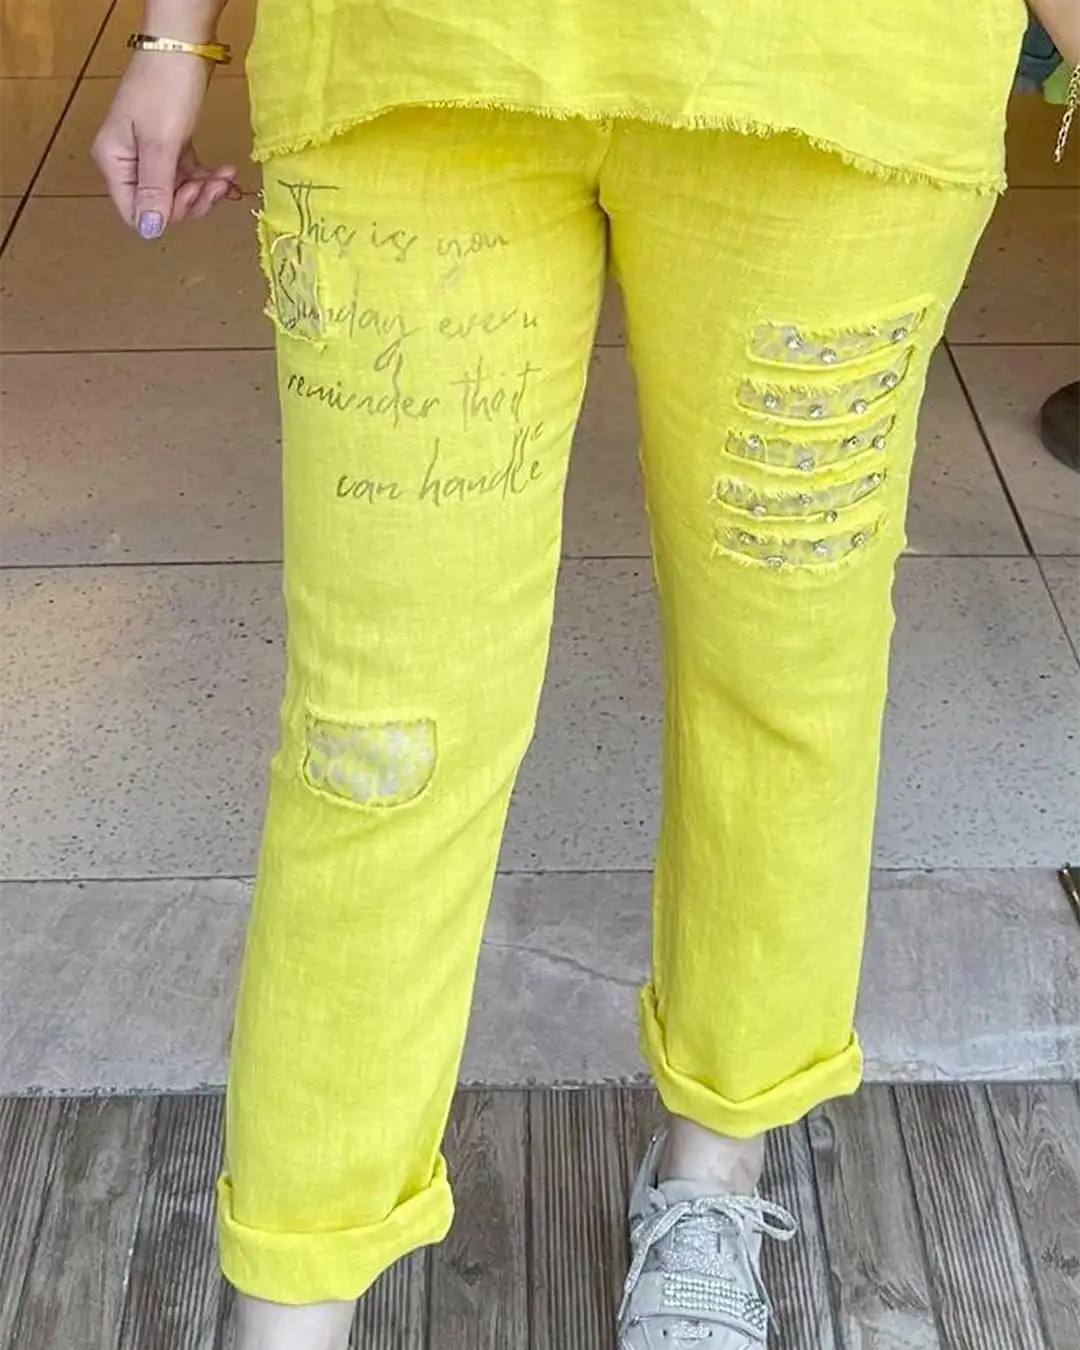 This is you
Sunday every
reminder that
can handle